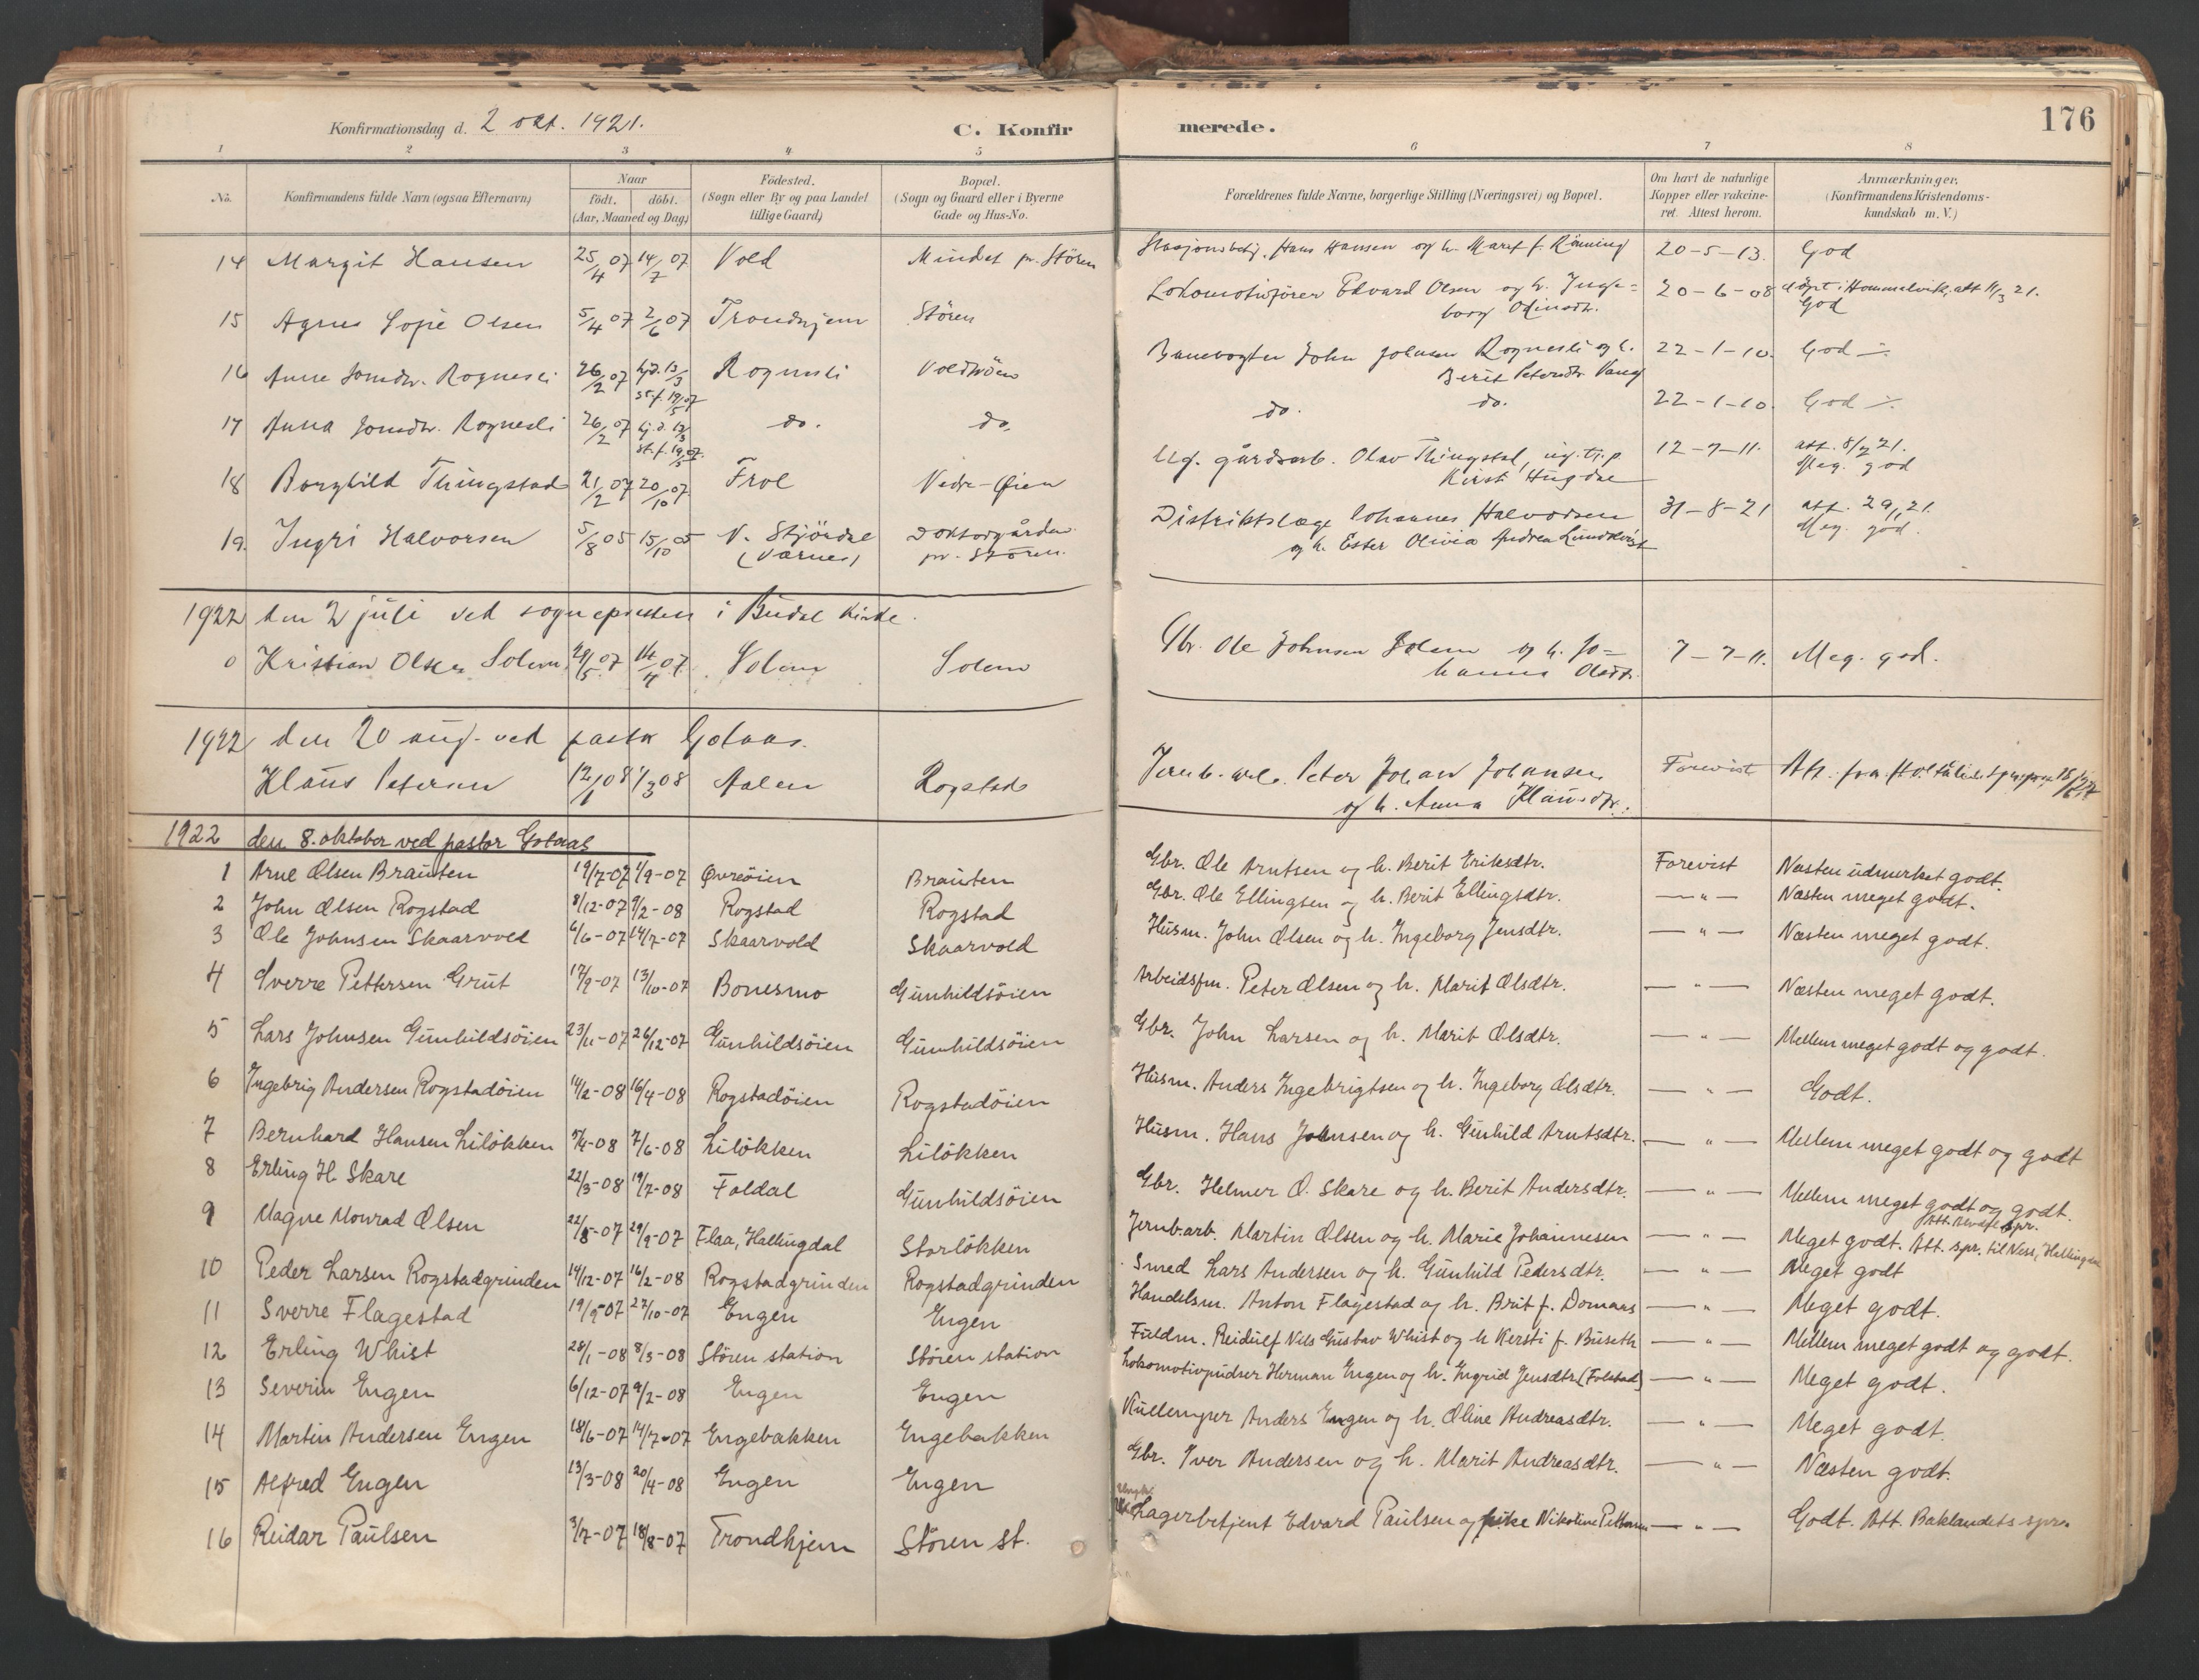 176
Konfirmationsdag d. 2 okt. 1921.
C. Konfirmerede.
1 2 3 4 5 6 7 8
No.
Konfirmandens fulde Navn (ogsaa Efternavn)
Naar
födt. döbt.
(Aar, Maaned og Dag)
Födested.
(Sogn eller By og paa Landet
tillige Gaard)
Bopæl.
(Sogn og Gaard eller i Byerne
Gade og Hus-No.
Forældrenes fulde Navne, borgerlige Stilling (Næringsvei) og Bopæl.
Om havt de naturlige
Kopper eller vakcine-
ret. Attest herom.
Anmærkninger.
(Konfirmandens Kristendoms-
kundskab m. V.)
14 Margit Hansen 25/4 07 14/7 07 Vold Mindet pr. Stören Stasjonsbetj. Hans Hansen og h. Marit f. Rönning 20-5-13. God
15 Agnes Sofie Olsen 5/4 07 2/6 07 Trondhjem Stören Lokomotivförer Edvard Olsen og h. Inge=
borg Odinsdtr. 20-6-08 döpt i Hommelvik, att 11/3 21.
God
16 Anne Jonsdtr. Rognesli 26/2 07 hj.d. 13/3
st.f. 19/5 07 Rognesli Voldsöien Banevogter John Johnsen Rognesli og h.
Berit Petersdtr Vang 22-1-10. God
17 Anna Jonsdtr. Rognesli 26/2 07 hj.d. 13/3
st.f. 19/5 07. do. do. do. do. 22-1-10. God
18 Borghild Thingstad 21/2 07 20/10 07. Frol Nedre-Øien Ug. gårdsarb. Olav Thingstad, ug. tj.p.
Kirsti Hugdal 12-7-11. att. 8/7 21.
Meg. god
19. Ingri Halvorsen 5/8 05 15/10 05 N. Stjördal
(Værnes) Doktorgården
pr. Stören. Distriktslæge Johannes Halvorsen
og h. Ester Olivia Andrea Lundkvist 31-8-21 att. 29/ 21.
Meg. god.
1922 den 2 juli ved sognepresten i Budal Kirke.
0 Kristian Olsen Solem 29/ 07 14/4 07. Solem Solem Gbr. Ole Johnsen Solem og h. Jo=
hanna Olsdtr. 7-7-11. Meg. god.
1922 den 20 aug. ved pastor Gotaas.
Klaus Petersen 12/1 08 1/3 08 Aalen Rogstad Jernb. arb. Peter Johan Johansen
og h. Anna Klausdtr. Forevist Att. fra
1922 den 8. oktober ved pastor Gotaas
1 Arne Olsen Brauten 19/7-07 1/9-07 Øvreöien Brauten Gbr. Ole Arntsen og h. Berit Eriksdtr. Forevist Næsten udmerket godt.
2 John Olsen Rogstad 8/12-07 9/2-08 Rogstad Rogstad Gbr. Ole Ellingsen og h. Berit Ellingsdtr. — " — Næsten meget godt.
3 Ole Johnsen Skaarvold 6/6-07 14/7-07 Skaarvold Skaarvold Husm. John Olsen og h. Ingeborg Jensdtr. — " — Næsten meget godt.
4 Sverre Pettersen Grut 17/9-07 13/10-07 Bonesmo Gunhildsöien Arbeidsfm. Peter Olsen og h. Marit Olsdtr. — " — Næsten meget godt.
5 Lars Johnsen Gunhildsöien 23/11-07 26/12-07 Gunhildsöien Gunhildsöien Gbr. John Larsen og h. Marit Olsdtr. — " — Mellem meget godt og godt.
6 Ingebrig Andersen Rogstadöien 14/2-08 16/4-08 Rogstadöien Rogstadöien Husm. Anders Ingebrigtsen og h. Ingeborg Olsdtr. — " — Godt.
7 Bernhard Hansen Lilökken 5/4-08 7/6-08 Lilökken Lilökken Husm. Hans Johnsen og h. Gunhild Arntsdtr. — " — Mellem meget godt og godt
8 Erling H. Skare 22/3-08 19/7-08 Foldal Gunhildsöien Gbr. Helmer O. Skare og h. Berit Andersdtr. — " — Mellem meget godt og godt.
Att. Alvdal spr.
9 Magne Monrad Olsen 22/8-07 29/9-07 Flaa, Hallingdal Storlökken Jernb.arb. Martin Olsen og h. Marie Johannesen — " — Meget godt. Att. spr. til Ness, Hallingdal
10 Peder Larsen Rogstadgrinden 14/12-07 16/2-08 Rogstadgrinden Rogstadgrinden Smed Lars Andersen og h. Gunhild Pedersdtr. — " — Meget godt
11 Sverre Flagestad 19/9-07 27/10-07 Engen Engen Handelsm. Anton Flagestad og h. Brit f. Domaas — " — Meget godt.
12 Erling Whist 28/1-08 8/3-08 Stören station Stören station Fuldm. Reidulf Nils Gustav Whist og h Kersti f. Buseth — " — Mellem meget godt og godt.
13 Severin Engen 6/12-07 9/2-08 Engen Engen Lokomotivpudser Herman Engen og h. Ingrid Jensdtr (Folstad) — " — Meget godt.
14 Martin Andersen Engen 18/6-07 14/7-07 Engebakken Engebakken Kullemper Anders Engen og h. Oline Andreasdtr. — " — Meget godt.
15 Alfred Engen 13/3-08 20/4-08 Engen Engen Gbr. Iver Andersen og h. Marit Andreasdtr. — " — Næsten godt.
16 Reidar Paulsen 3/7-07 18/8-07 Trondhjem Stören st. Ungk. Lagerbetjent Edvard Paulsen og pike Nikoline Pettersen — " — Godt. Att. Baklandets spr.